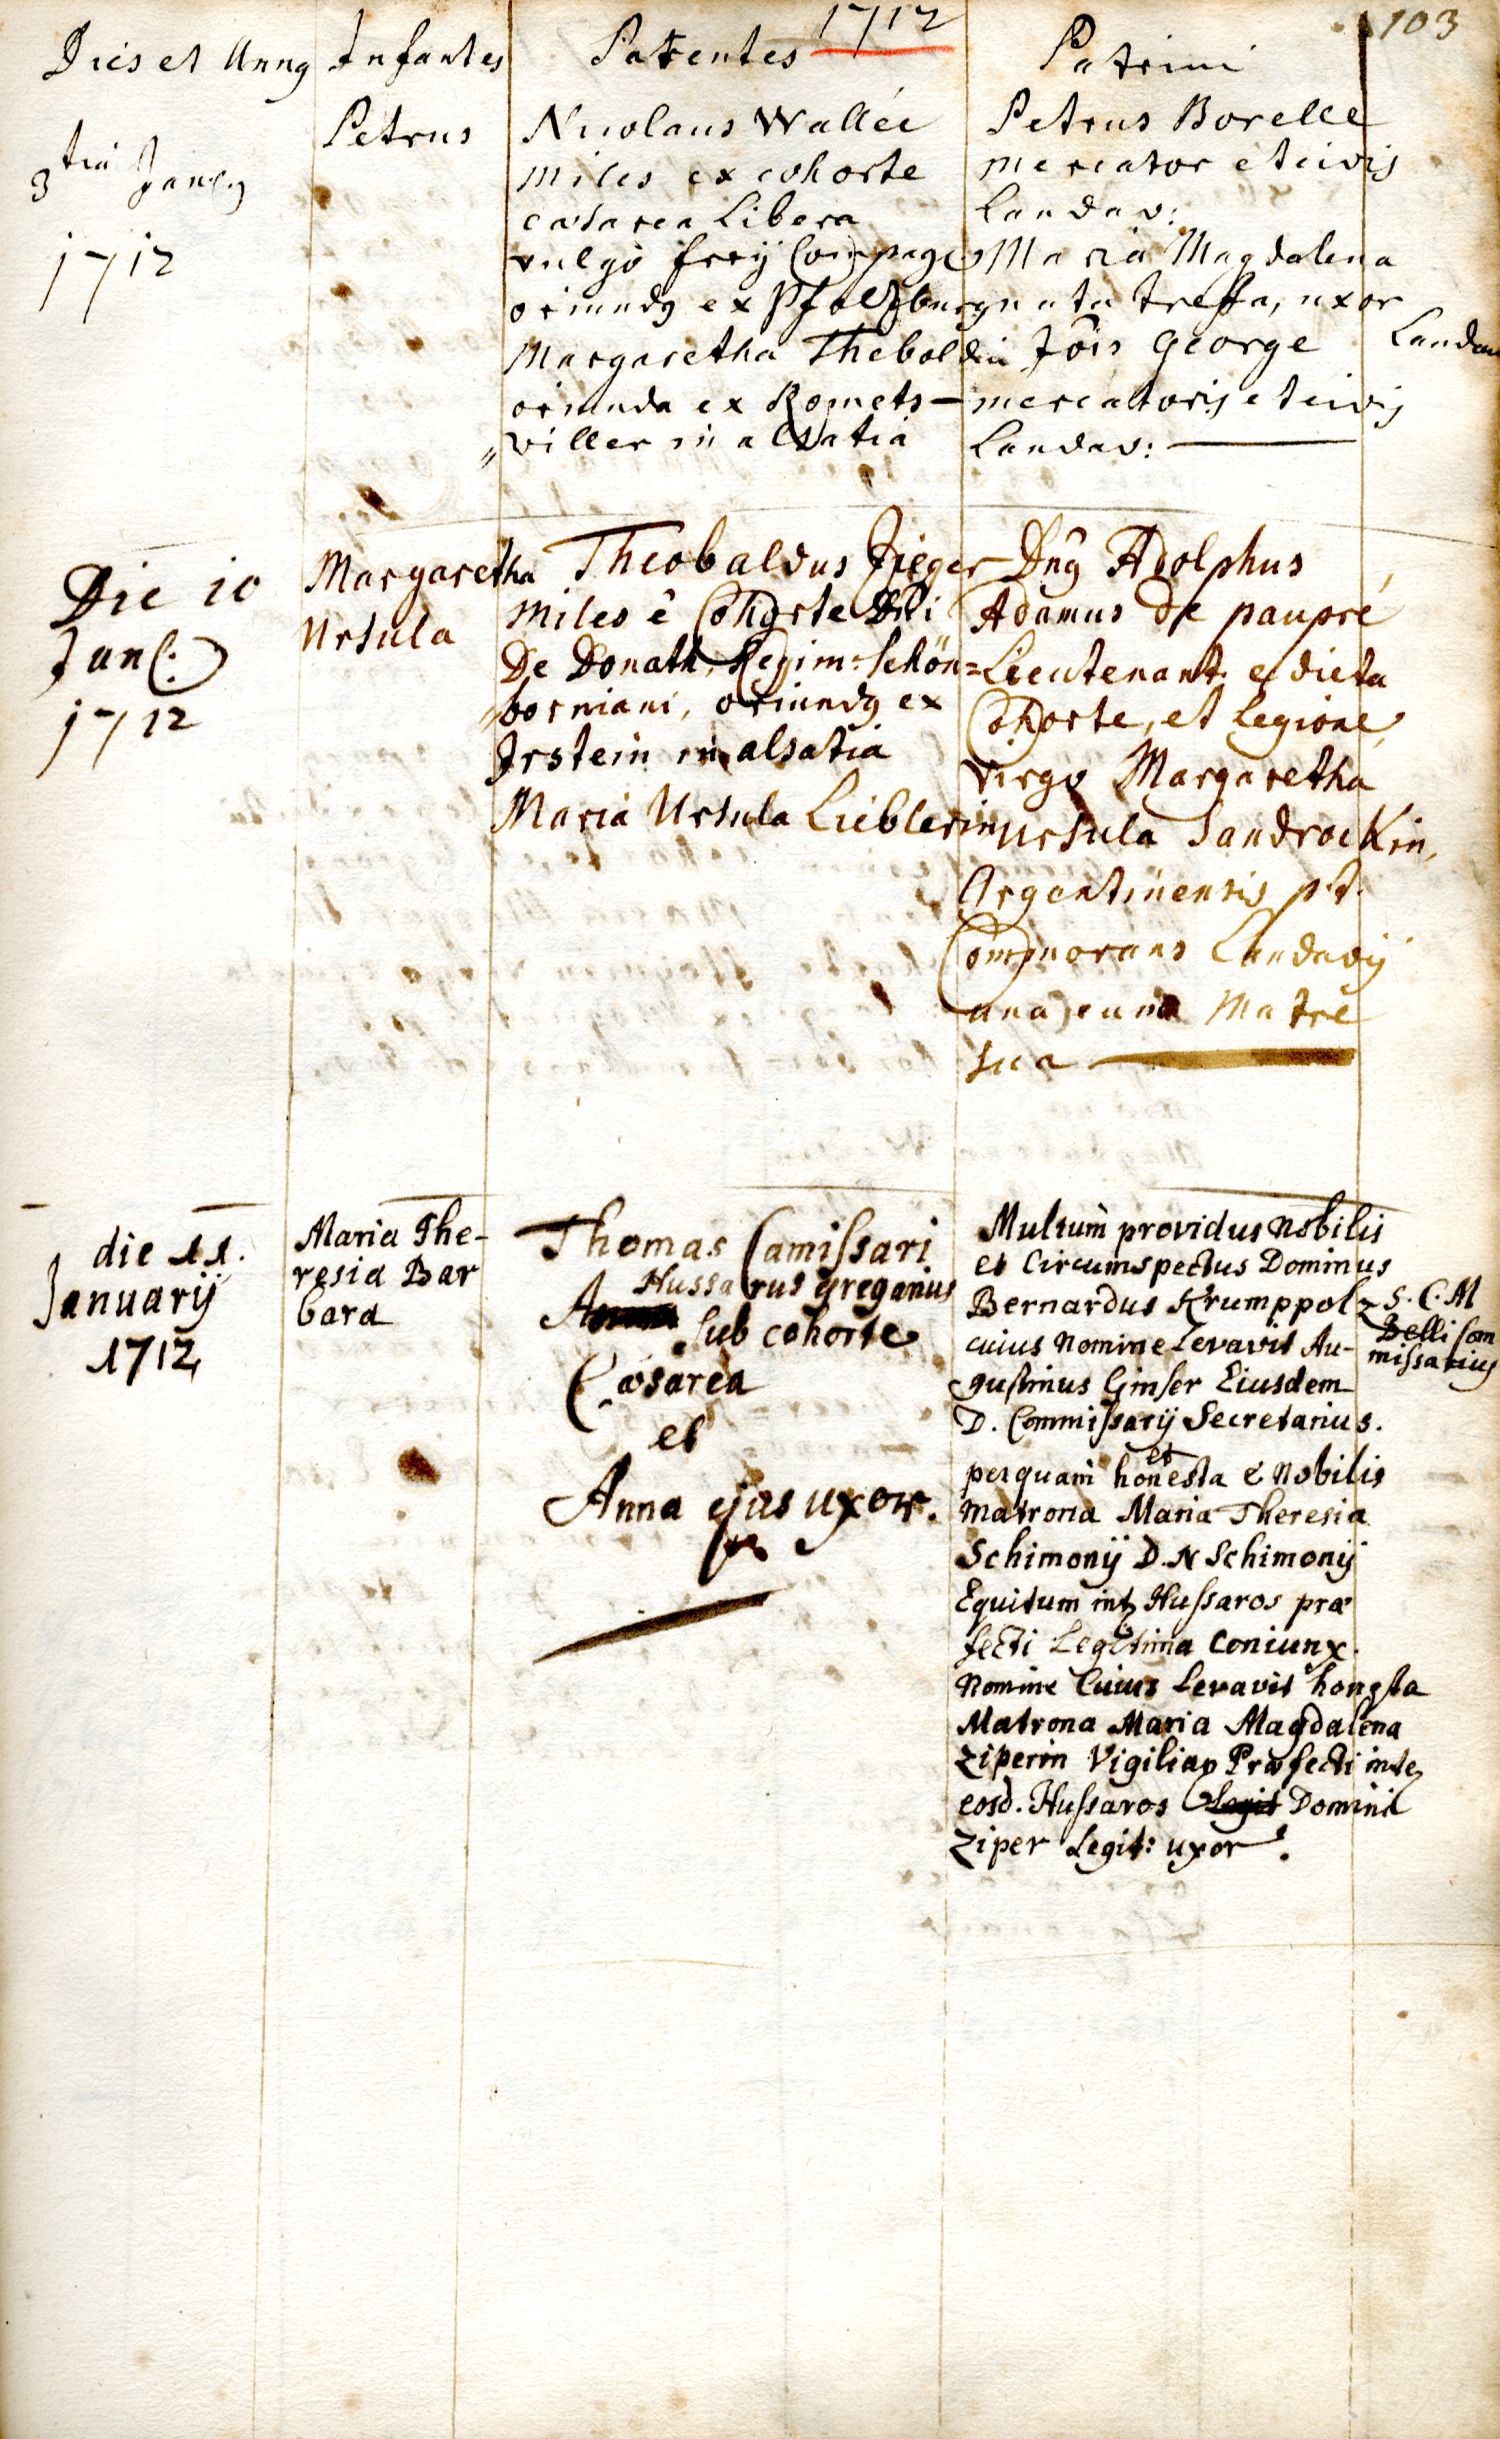 1712
103
Dies et Anng
Infantes
Parentes
Patrini
3
tia
Janr̃ij
1712
Petrus
Nicolaus Walleé
miles ex cohorte
caesarea Libera
vulgò freÿ Compagn
oriundg ex Pfaltzburg
Margaretha Theboldin
oriunda ex Romets-
„viller in alsatia
Petrus Borelle
mercator et civis
Landav:
Maria Magdalena
nata Treffa, uxor
Jôis George
Landau
mercatoris et civis
Landav:
Die 10
Jan(:)
1712
Margaretha
Ursula
Theobaldus Jieger
miles ê Cohorte Dñi
De Donath, Regim: Schön=
„borniani, oriundg ex
Irstein in alsatia
Maria Ursula Lieblerin
Dñg Adolphus
Adamus de paupré
Lieutenant. e dicta
Cohorte, et legione,
virgo Margaretha
ursula Sandrockin,
Argentinensis p.t.
Commorans Landavij
una cum Matre
sua
die 11.
Januarij
1712
Maria The-
resia Bar
bara
Thomas Camißari
Hussarus gregarius
sub cohorte
Cæsarea
et
Anna ejus uxor.
Multum providus Nobilis
et Circumspectus Dominus
Bernardus Krumppolz
S. C. M
Belli Com
mißarius
cuius nomine Levavit Au-
gustinus Ginser Eiusdem
D. Commißarij Secretarius.
et
perquam honesta & Nobilis
matrona Maria Theresia
Schimonij D. N Schimonij
Equitum int Hußaros præ
fecti Legitima coniunx.
Nomine Cuius Levavit honesta
Matrona Maria Magdalena
Ziperin Vigiliar Præfecti inte
eosd. Hußaros Legit Domini
Ziper Legit: uxor.